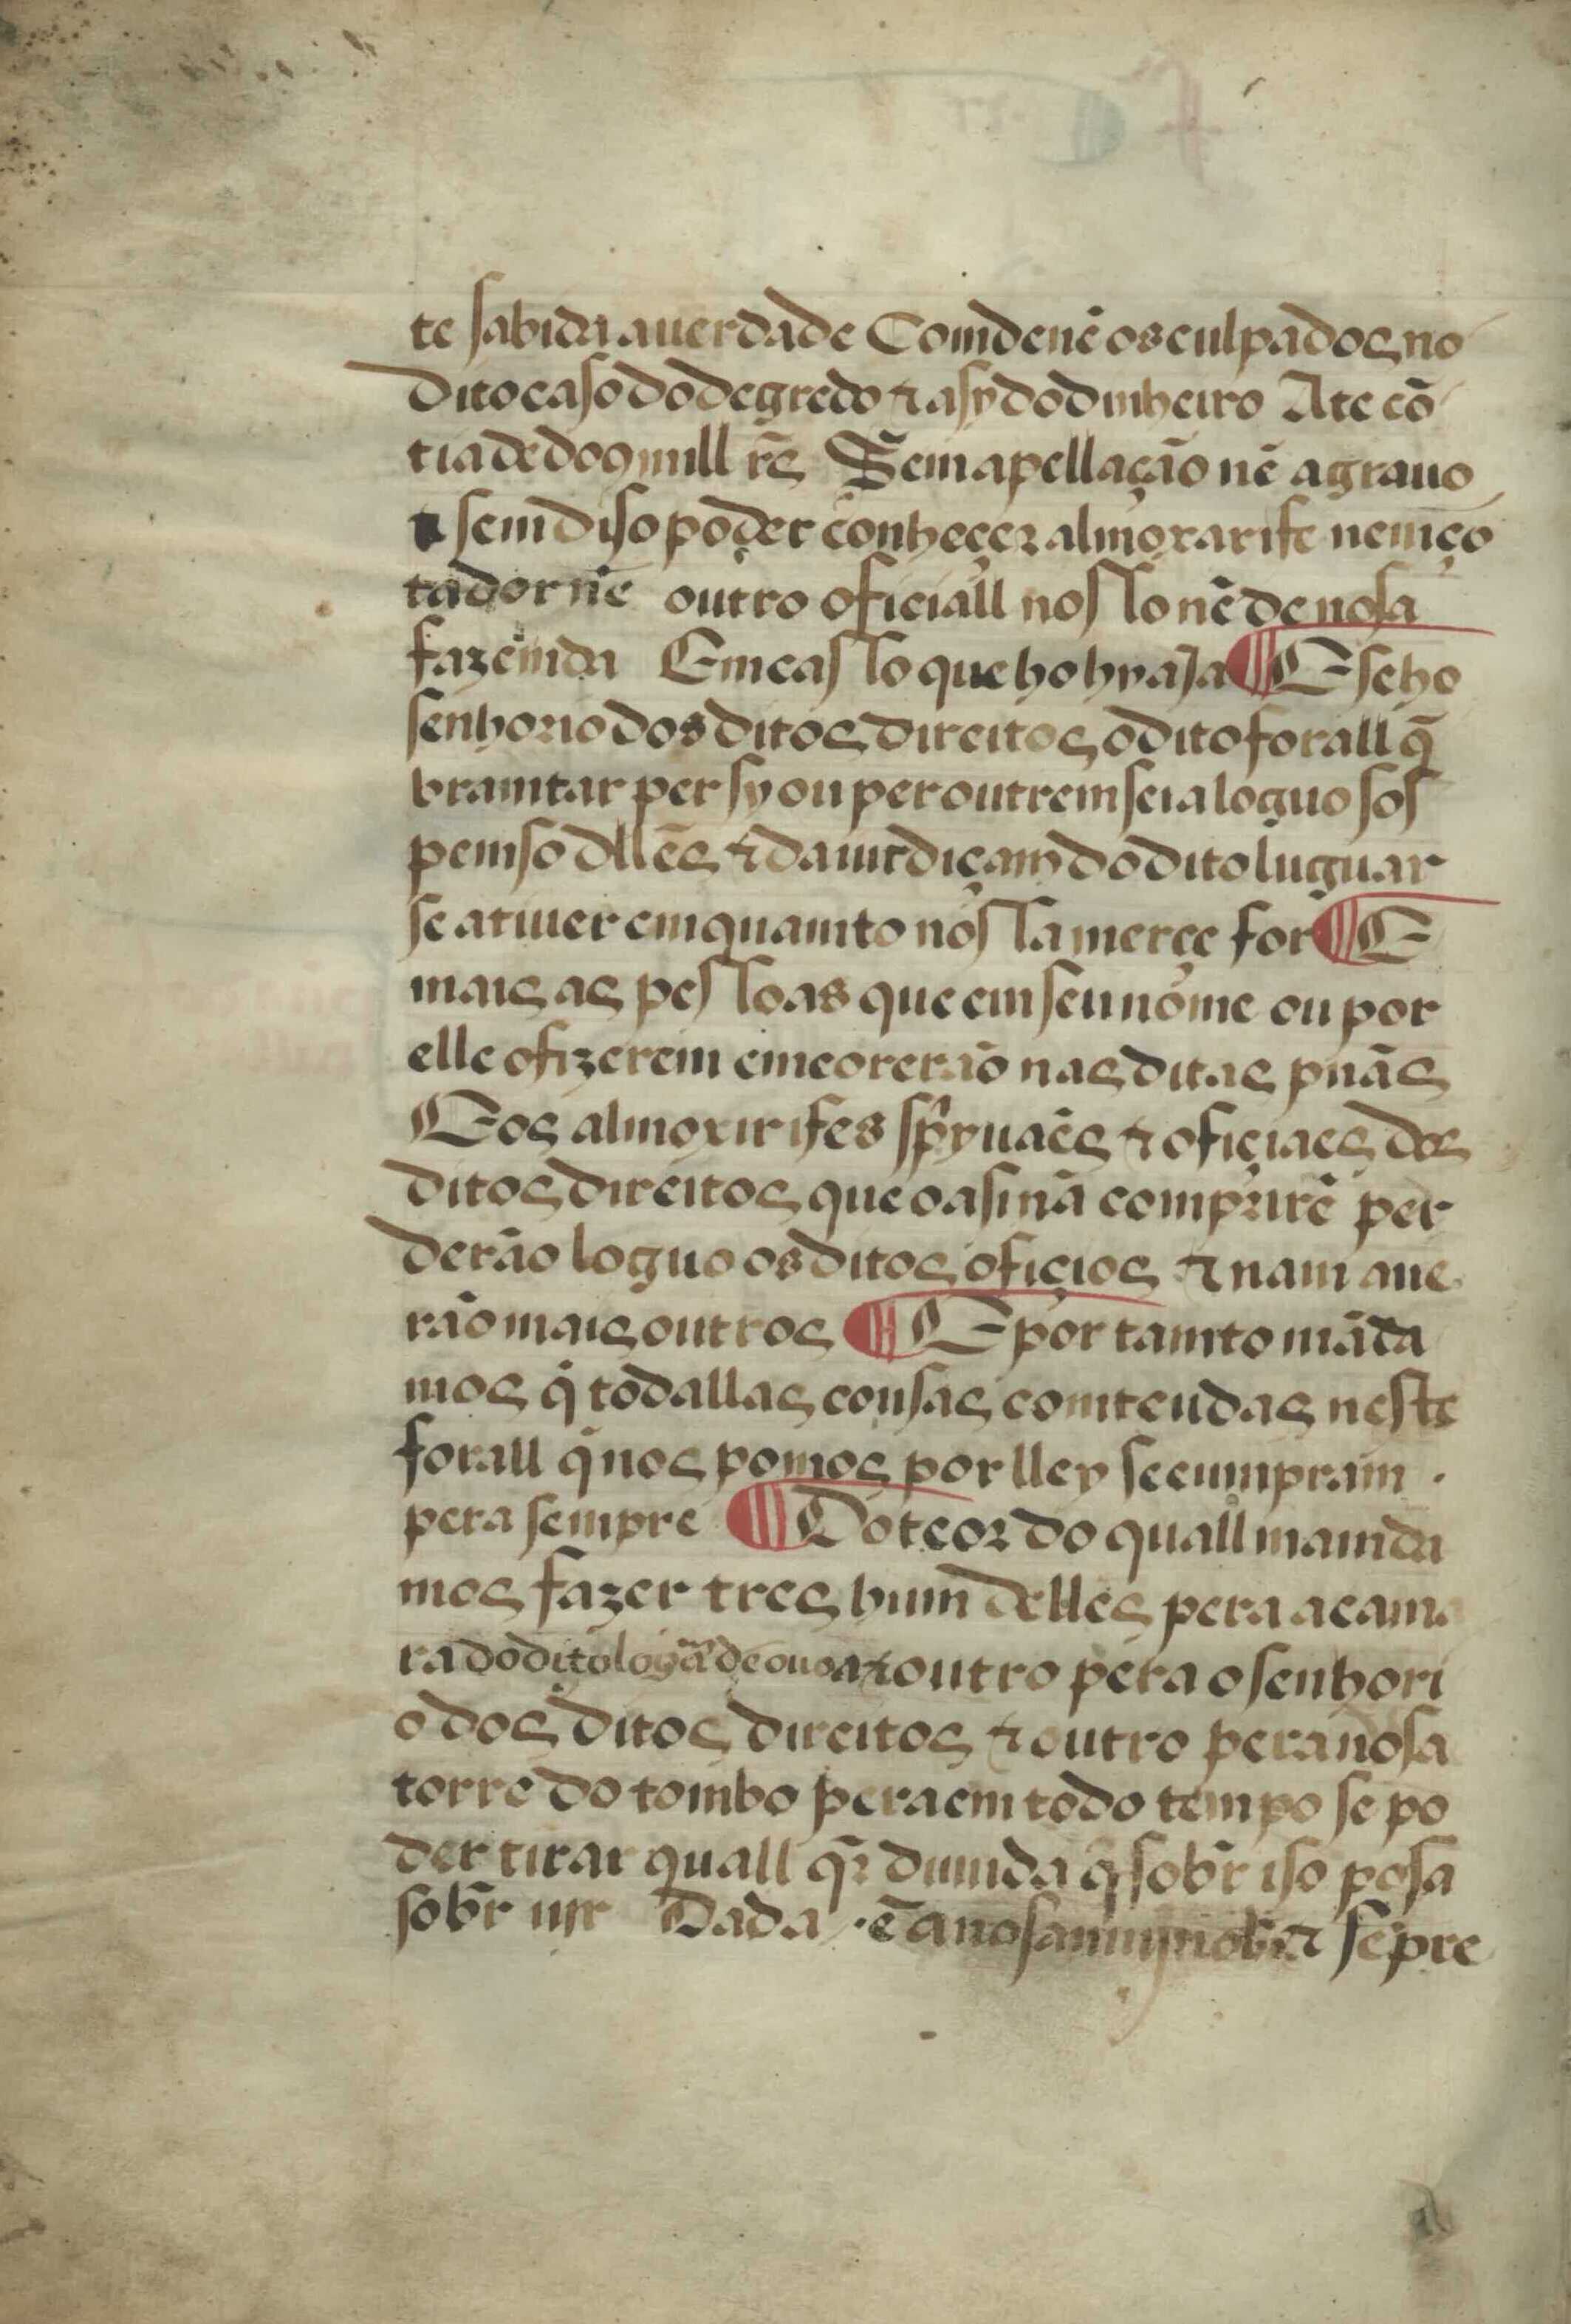 te sabida a uerdade Comdenẽ os culpados no
dito caso do degredo ⁊ asy do dinheiro Ate cõ
tia de dos mill rẽs Sem apellação nẽ agrauo
⁊ sem diso poder conheçer almoxarife nem cõ
tador nẽ outro oficiall nosso nẽ de nosa
fazemda Em casso que ho hy aja ¶ E se ho
senhorio dos ditos direitos o dito forall q̃
bramtar per sy ou per outrem seia loguo sos
pemso dllẽs ⁊ da iurdiçam do dito luguar
se a tiuer emquamto nossa merçe for ¶ E
mais as pessoas que em seu nome ou por
elle o fizerem emcorerão nas ditas pñas
E os almoxirifes sp̃uaẽs ⁊ ofiçiaes dos
ditos direitos que o asi nã comprirẽ per
derão loguo os ditos ofiçios ⁊ nam aue
rão mais outros ¶ E por tamto mãda
mos q̃ todallas cousas comteudas neste
forall q̃ nos pomos por lley se cumpram
pera sempre ¶ Do teor do quall mamda
mos fazer tres hum delles pera a cama
ra do dito ⁊ outro pera o senhori
o dos ditos direitos ⁊ outro pera nosa
torre do tombo pera em todo tempo se po
der tirar quall q̃r duuida q̃ sobr̃ iso posa
sobr̃ uir Dada ẽ a nosa muy nobr̃ ⁊ sẽpre